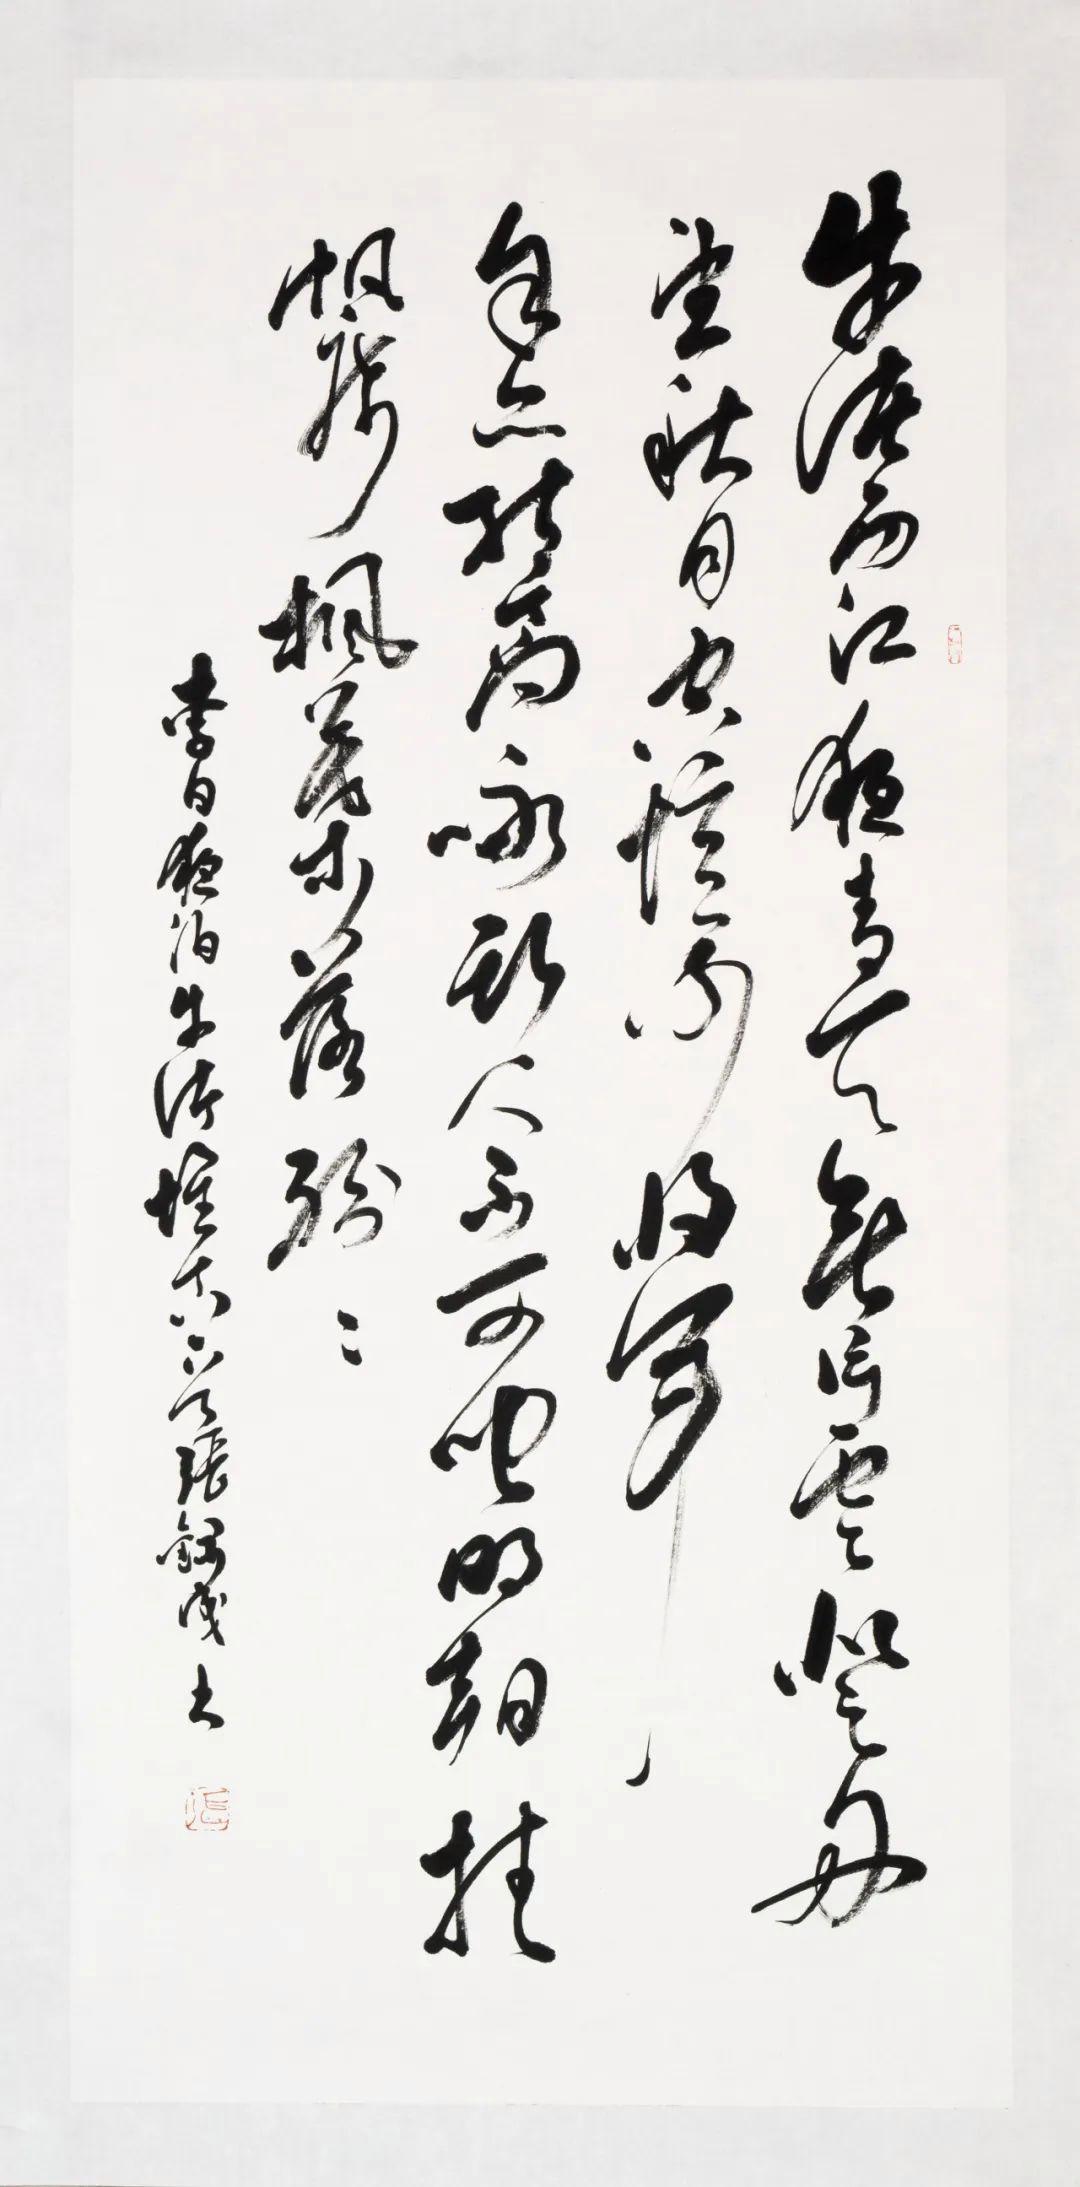 牛渚西江夜青天無片雲登舟
望秋月空憶謝將軍
余亦能高咏斯人不可聞明朝挂
帆席楓葉落紛〻
李白夜泊牛渚懷古 張 书